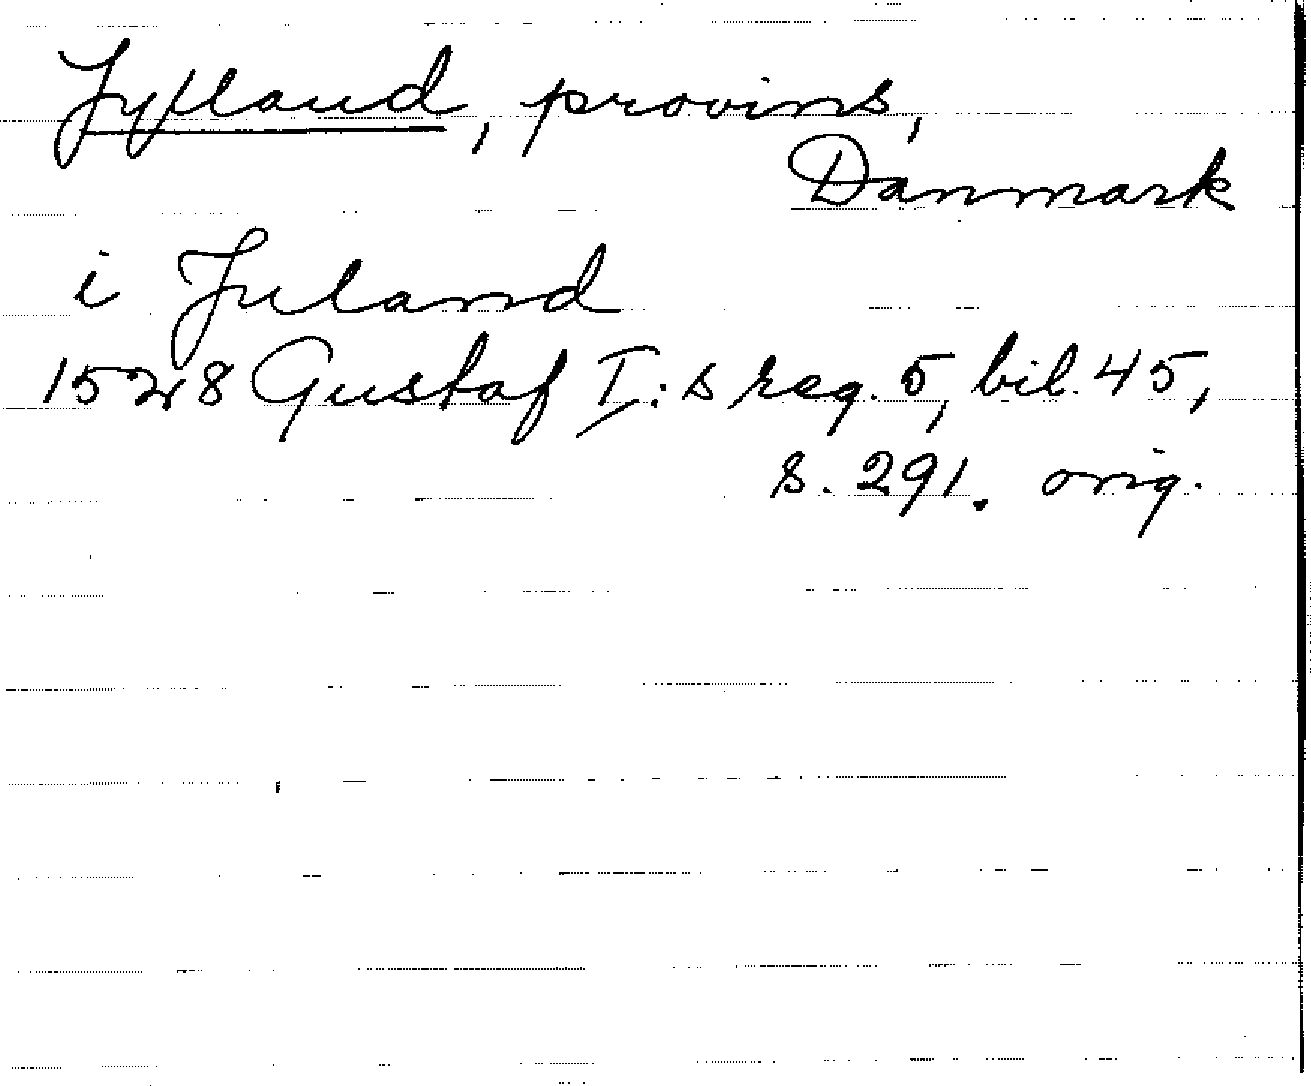 Jylland, provins,
Danmark
i Juland
1528 Gustaf I:s reg. 5, bil. 45,
s. 291. orig.